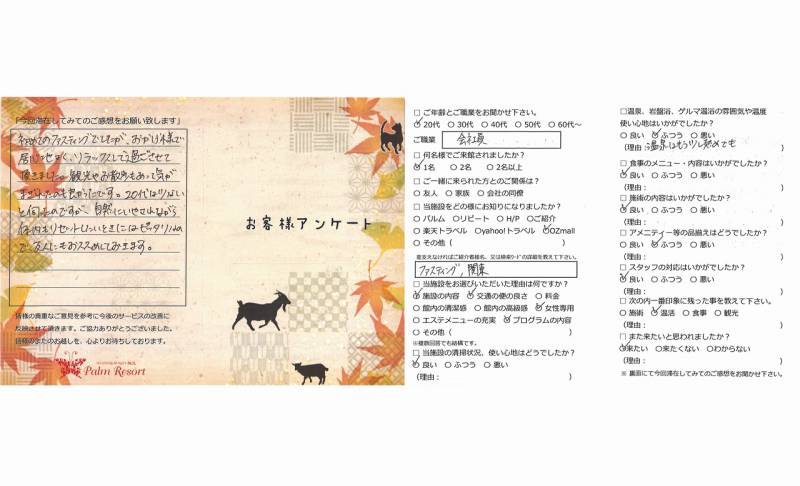 「今回滞在してみてのご感想をお願い致します」
初めてのファスティングでしたが、おかげ様で
居心地がよく、リラックスして過ごさせて
頂きました。観光やお散歩もあって気が
まぎれたのも良かったです。20代は少ない
と伺ったのですが、自然にいやされながら
体内もリセットしたいときにはピッタリなの
で、友人にもおススメしてみます。
皆様の貴重なご意見を参考に今後のサービスの改善に
反映させて頂きます。ご協力ありがとうございました。
皆様のまたのお越しを、心よりお待ちしております。
Palm Resort
お客様アンケート
□ ご年齢とご職業をお聞かせ下さい。
○20代 ○30代 ○40代 ○50代 ○60代～
ご職業 会社員
□ 何名様でご来館されましたか？
○1名 ○2名 ○2名以上
□ ご一緒に来られた方とのご関係は？
○友人 ○家族 ○会社の同僚
□ 当施設をどの様にお知りになりましたか？
○パルム ○リピート ○H/P ○ご紹介
○楽天トラベル ○yahoo!トラベル ○OZmall
○その他（ ）
※差支えなければご紹介者様名、又は検索ワードの詳細を教えて下さい。
ファスティング, 関東
□ 当施設をお選びいただいた理由は何ですか？
○施設の内容 ○交通の便の良さ ○料金
○館内の清潔感 ○館内の高級感 ○女性専用
○エステメニューの充実 ○プログラムの内容
○その他（ ）
※複数回答でも結構です。
□ 当施設の清掃状況、使い心地はどうでしたか？
○良い ○ふつう ○悪い
（理由： ）
□温泉、岩盤浴、ゲルマ温浴の雰囲気や温度
使い心地はいかがでしたか？
○良い ○ふつう ○悪い
（理由：温泉はもう少し熱めでも ）
□ 食事のメニュー・内容はいかがでしたか？
○良い ○ふつう ○悪い
（理由： ）
□ 施術の内容はいかがでしたか？
○良い ○ふつう ○悪い
□ アメニティー等の品揃えはどうでしたか？
○良い ○ふつう ○悪い
□ スタッフの対応はいかがでしたか？
○良い ○ふつう ○悪い
□ 次の内一番印象に残った事を教えて下さい。
○施術 ○温活 ○食事 ○観光
□ また来たいと思われましたか？
○来たい ○来たくない ○わからない
（理由： ）
※ 裏面にて今回滞在してみてのご感想をお聞かせ下さい。